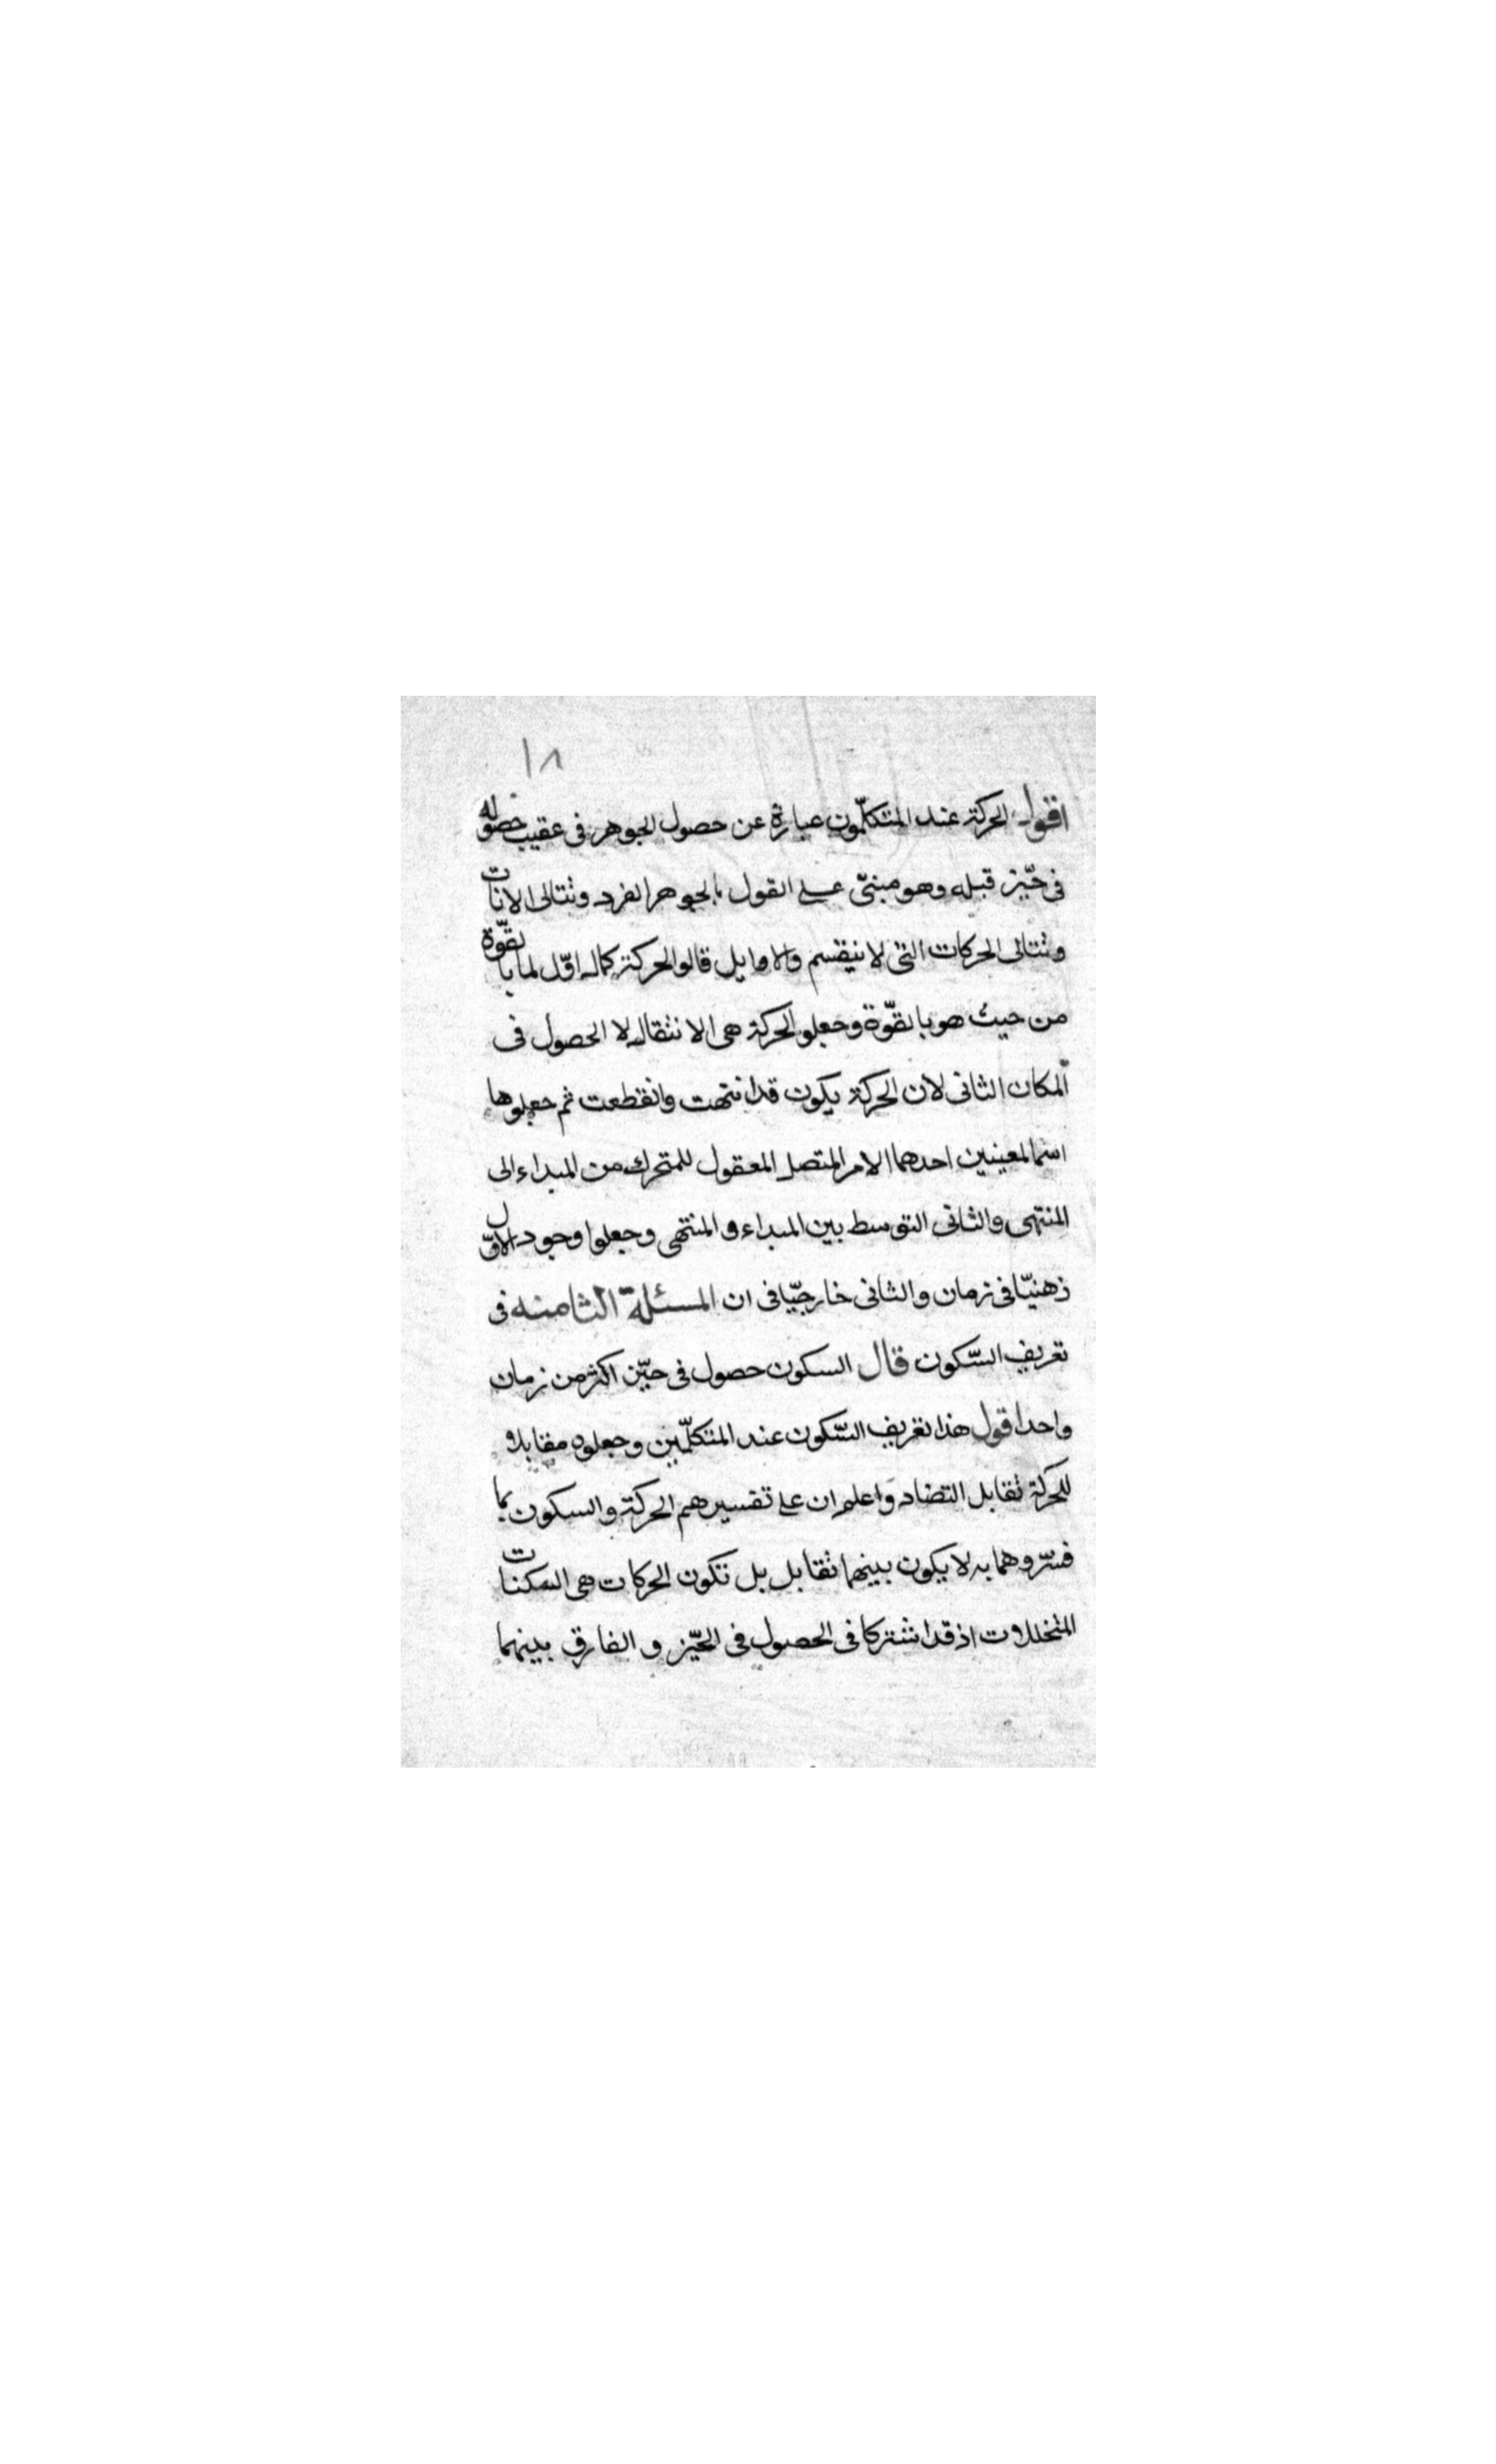 ١٨
اقول الحركة عند المتكلّمون عبارة عن حصول الجوهر فى عقيب حصوله
فى حيّز قبله وهو مبنىّ على القول بالجوهر الفرد وتتالى الانات
وتتالى الحركات التى لا ينقسم والاوايل قالوا الحركة كمال اوّل لما بالقوّة
من حيث هو بالقوّة وجعلو الحركة هى الانتقال لا الحصول فى
المكان الثانى لان الحركة يكون قد انتهت وانقطعت ثم جعلوها
اسما لمعينين احدهما الامر المتصل المعقول للمتحرك من المبداء الى
المنتهى والثانى التوسط بين المبداء و المنتهى وجعلوا وجود الاوّل
ذهنيّا فى زمان والثانى خارجيّا فى ان المسئلة الثامنه فى
تعريف السّكون قال السكون حصول فى حيّز اكثر من زمان
واحد اقول هذا تعريف السّكون عند المتكلّمين وجعلوه مقابلا
للحركة تقابل التضاد واعلم ان على تفسيرهم الحركة والسكون بما
فسّروهما به لا يكون بينهما تقابل بل تكون الحركات هى السكنات
المتخللات اذ قد اشتركا فى الحصول فى الحيّز و الفارق بينهما